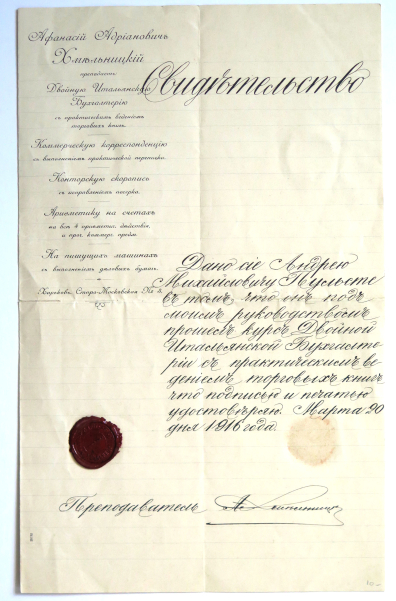 Афанасій Адріановичъ
Хмѣльницкій
преподаетъ
Двойную Итальянскую
Бухгалтерію
съ практическимъ веденіемъ
торговыхъ книгъ.
Коммерческую корреспонденцію
съ выполненіемъ практической переписки.
Конторскую скоропись
съ исправленіемъ почерка.
Ариѳметику на счетахъ
На пишущихъ машинахъ
съ выполненіемъ дѣловыхъ бумагъ.
Харьковъ, Старо-Московская № 8.
Свидѣтельство
Дано сіе Андрею
Михайловичу
въ томъ, что онъ подъ
моимъ руководствомъ
прошелъ курсъ Двойной
Итальянской Бухгалте-
ріи съ практическимъ ве-
деніемъ торговыхъ книгъ,
что подписью и печатью
удостовѣряю. Марта 20
дня 1916 года.
Преподаватель